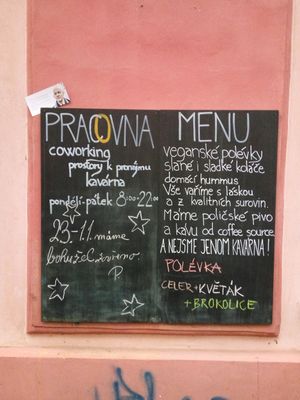 PRACOVNA
coworking
prostory k pronájmu
kavárna
pondělí-pátek 8:00-22:00
23.-1.1. máme
bohužel zavřeno
P.
MENU
veganské polévky
slané i sladké koláče
domácí hummus
Vše vaříme s láskou
a z kvalitních surovin.
Máme poličské pivo
a kávu od coffee source
A NEJSME JENOM KAVÁRNA!
POLÉVKA
CELER + KVĚTÁK
+ BROKOLICE